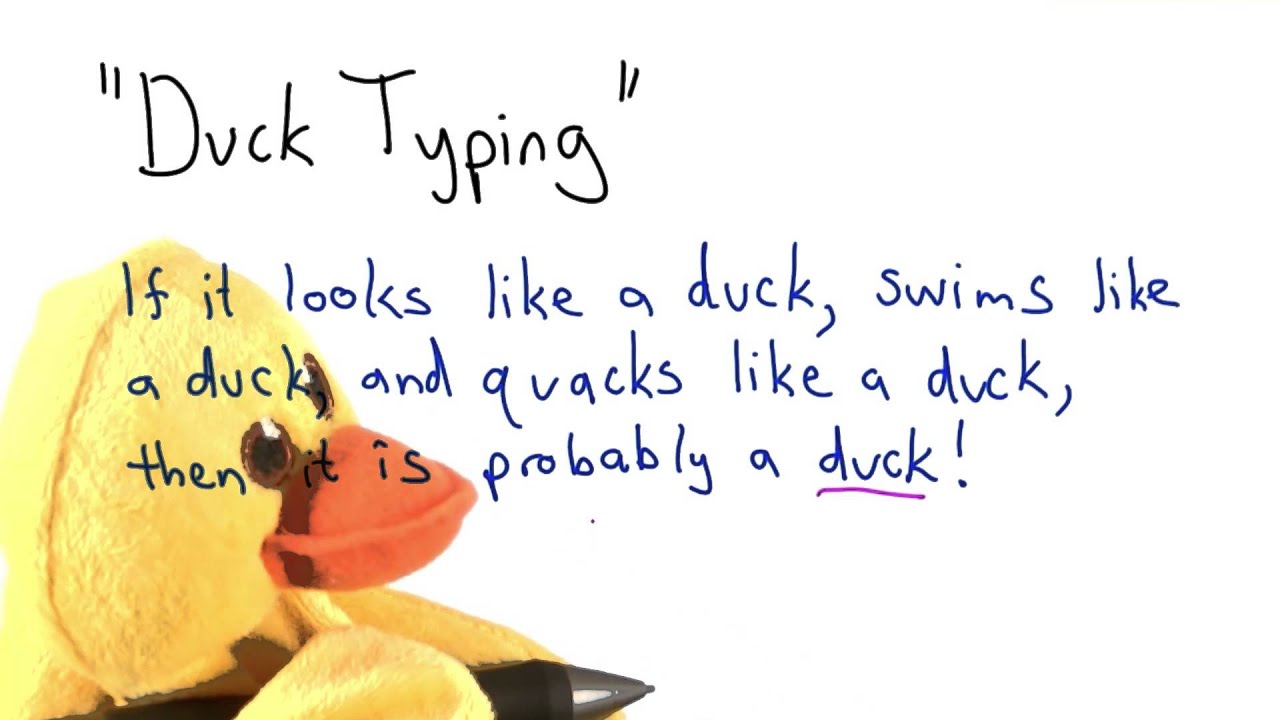 "Duck Typing"
If it looks like a duck, swims like
a duck, and quacks like a duck,
then it is probably a duck!